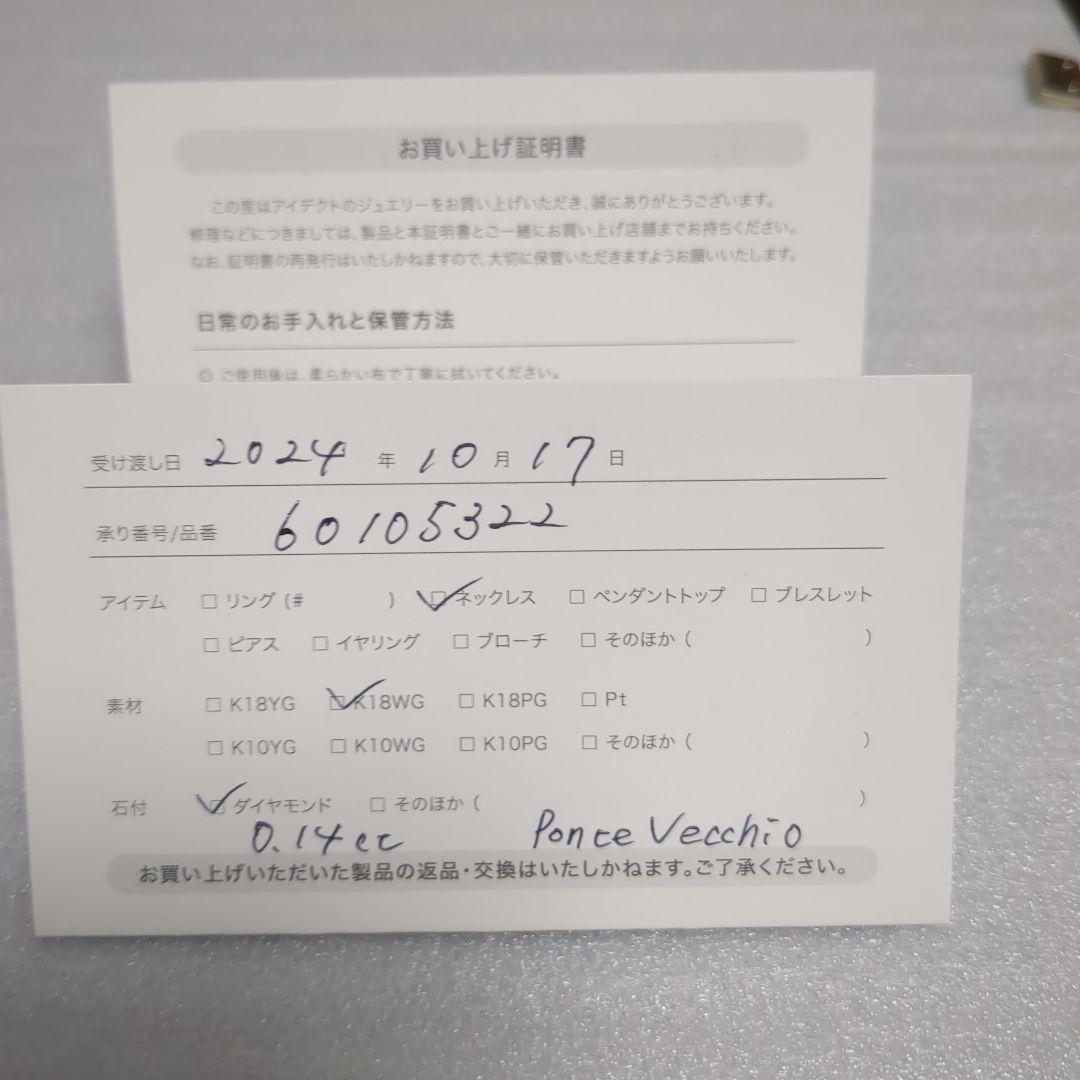 お買い上げ証明書
この度はアイデクトのジュエリーをお買い上げいただき、誠にありがとうございます。
修理などにつきましては、製品と本証明書とご一緒にお買い上げ店舗までお持ちください。
なお、証明書の再発行はいたしかねますので、大切に保管いただきますようお願いいたします。
日常のお手入れと保管方法
◎ ご使用後は、柔らかい布で丁寧に拭いてください。
受け渡し日 2024 年 10 月 17 日
承り番号/品番 60105322
アイテム □ リング (# ) ☑ ネックレス □ ペンダントトップ □ ブレスレット
□ ピアス □ イヤリング □ ブローチ □ そのほか ( )
素材 □ K18YG ☑ K18WG □ K18PG □ Pt
□ K10YG □ K10WG □ K10PG □ そのほか ( )
石付 ☑ ダイヤモンド □ そのほか ( )
0.14ct Ponte Vecchio
お買い上げいただいた製品の返品・交換はいたしかねます。ご了承ください。